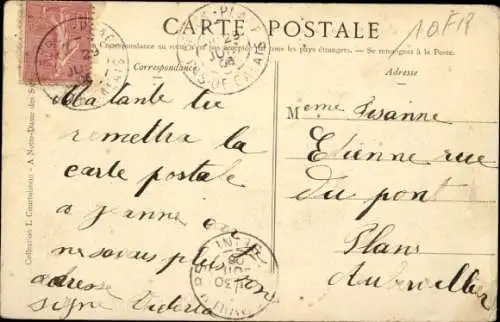 CARTE POSTALE
10F18
Correspondance au recto n'est pas acceptée par tous les pays étrangers. — Se renseigner à la Poste.
Correspondance
Adresse
Ma tante te
remettra la
carte postale
a Jeanne car je
ne savais plus son
adresse
signe Victoria
Meme Suzanne
Etienne rue
du pont
Blanc
Aubervillier
Collection L. - A Notre-Dame des
29
PAS-DE-CALAIS
30